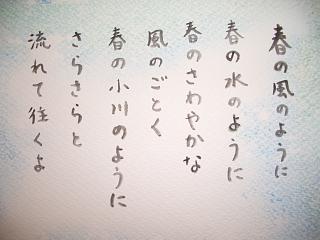 春の風のように
春の水のように
春のさわやかな
風のごとく
春の小川のように
さらさらと
流れて往くよ